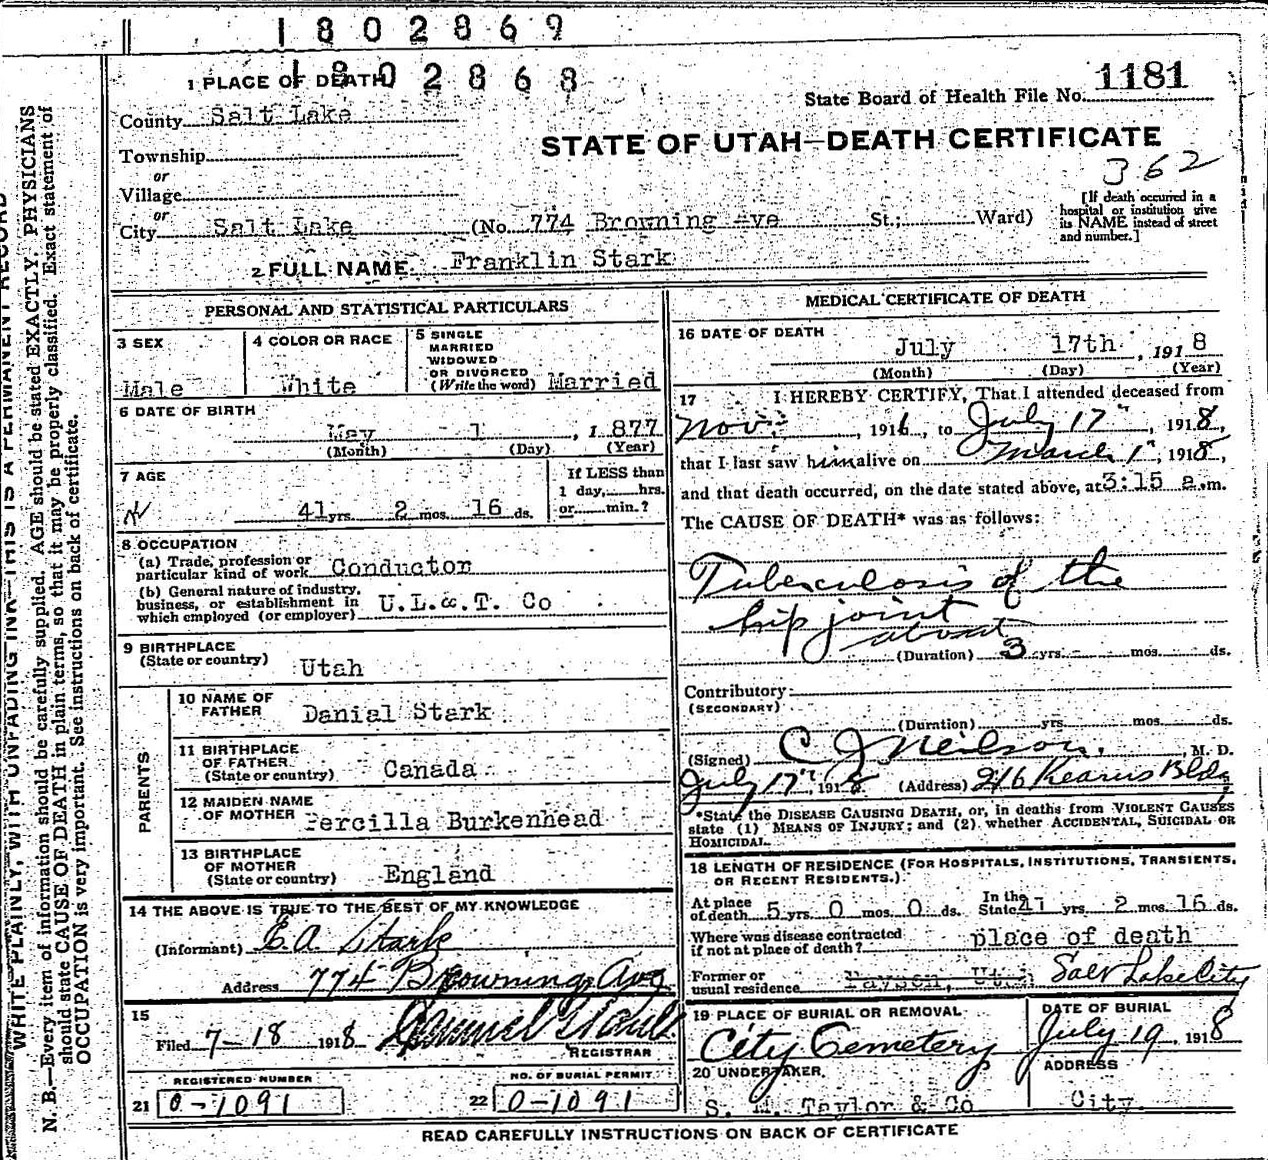 1802869
1802868
1 PLACE OF DEATH
State Board of Health File No. 1181
County Salt Lake
STATE OF UTAH—DEATH CERTIFICATE
Township
or
362
Village
or
City Salt Lake (No. 774 Browning Ave St.; Ward)
[If death occurred in a
hospital or institution give
its NAME instead of street
and number.]
2 FULL NAME Franklin Stark
PERSONAL AND STATISTICAL PARTICULARS
3 SEX
Male
4 COLOR OR RACE
White
5 SINGLE
MARRIED
WIDOWED
OR DIVORCED
(Write the word) Married
6 DATE OF BIRTH
May 1, 1877
(Month) (Day) (Year)
7 AGE
41 yrs. 2 mos. 16 ds.
If LESS than
1 day, hrs.
or min.?
8 OCCUPATION
(a) Trade, profession or
particular kind of work Conductor
(b) General nature of industry,
business, or establishment in
which employed (or employer) U.L.&.T. Co
9 BIRTHPLACE
(State or country) Utah
PARENTS
10 NAME OF
FATHER Danial Stark
11 BIRTHPLACE
OF FATHER
(State or country) Canada
12 MAIDEN NAME
OF MOTHER Percilla Burkenhead
13 BIRTHPLACE
OF MOTHER
(State or country) England
14 THE ABOVE IS TRUE TO THE BEST OF MY KNOWLEDGE
(Informant) E. A. Stark
Address 774 Browning Ave
15
Filed 7-18 1918
REGISTRAR
REGISTERED NUMBER
21 0-1091
NO. OF BURIAL PERMIT
22 0-1091
MEDICAL CERTIFICATE OF DEATH
16 DATE OF DEATH
July 17th, 1918
(Month) (Day) (Year)
17 I HEREBY CERTIFY, That I attended deceased from
Nov., 1916, to July 17", 1918,
that I last saw him alive on March 1", 1918,
and that death occurred, on the date stated above, at 3:15 a.m.
The CAUSE OF DEATH* was as follows:
Tuberculosis of the
hip joint
about
(Duration) 3 yrs. mos. ds.
Contributory
(SECONDARY)
(Duration) yrs. mos. ds.
(Signed) C J Neilson, M. D.
July 17", 1918 (Address) 216 Kearns Bldg
*State the DISEASE CAUSING DEATH, or, in deaths from VIOLENT CAUSES
state (1) MEANS OF INJURY; and (2) whether ACCIDENTAL, SUICIDAL OR
HOMICIDAL.
18 LENGTH OF RESIDENCE (FOR HOSPITALS, INSTITUTIONS, TRANSIENTS,
OR RECENT RESIDENTS.)
At place
of death 5 yrs. 0 mos. 0 ds. In the
State 41 yrs. 2 mos. 16 ds.
Where was disease contracted
if not at place of death? place of death
Former or
usual residence Payson, Utah Salt Lake City
19 PLACE OF BURIAL OR REMOVAL
City Cemetery
DATE OF BURIAL
July 19, 1918
20 UNDERTAKER
S. M. Taylor & Co
ADDRESS
City.
READ CAREFULLY INSTRUCTIONS ON BACK OF CERTIFICATE
WRITE PLAINLY, WITH UNFADING INK—THIS IS A PERMANENT RECORD
N. B.—Every item of information should be carefully supplied. AGE should be stated EXACTLY. PHYSICIANS
should state CAUSE OF DEATH in plain terms, so that it may be properly classified. Exact statement of
OCCUPATION is very important. See instructions on back of certificate.